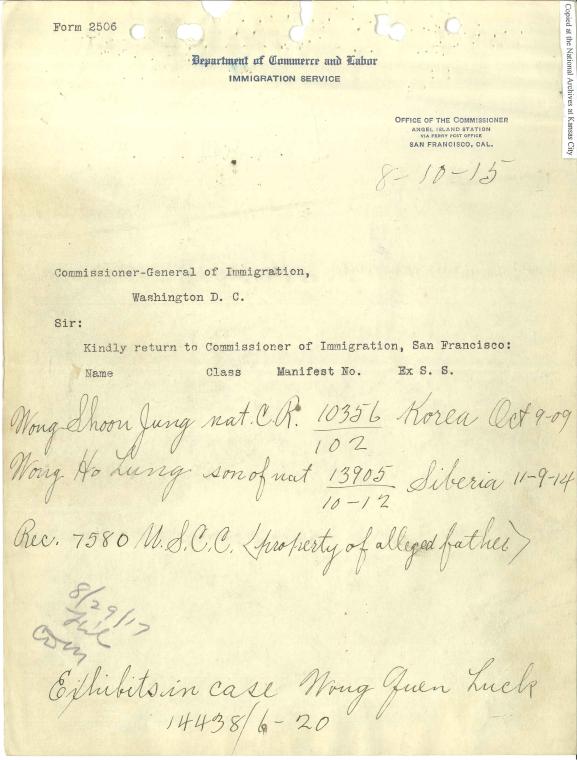 Form 2506
Copied at the National Archives at Kansas City
Department of Commerce and Labor
IMMIGRATION SERVICE
OFFICE OF THE COMMISSIONER
ANGEL ISLAND STATION
VIA FERRY POST OFFICE
SAN FRANCISCO, CAL.
8-10-15
Commissioner-General of Immigration,
Washington D. C.
Sir:
Kindly return to Commissioner of Immigration, San Francisco:
Name Class Manifest No. Ex S. S.
Wong Shoon Jung nat. C.R. 10356/102 Korea Oct 9-09
Wong Ho Lung son of nat 13905/10-12 Siberia 11-9-14
Rec. 7580 U.S.C.C. <property of alleged father>
8/29/17
File
Exhibits in case Wong Quen Luck
14438/6-20